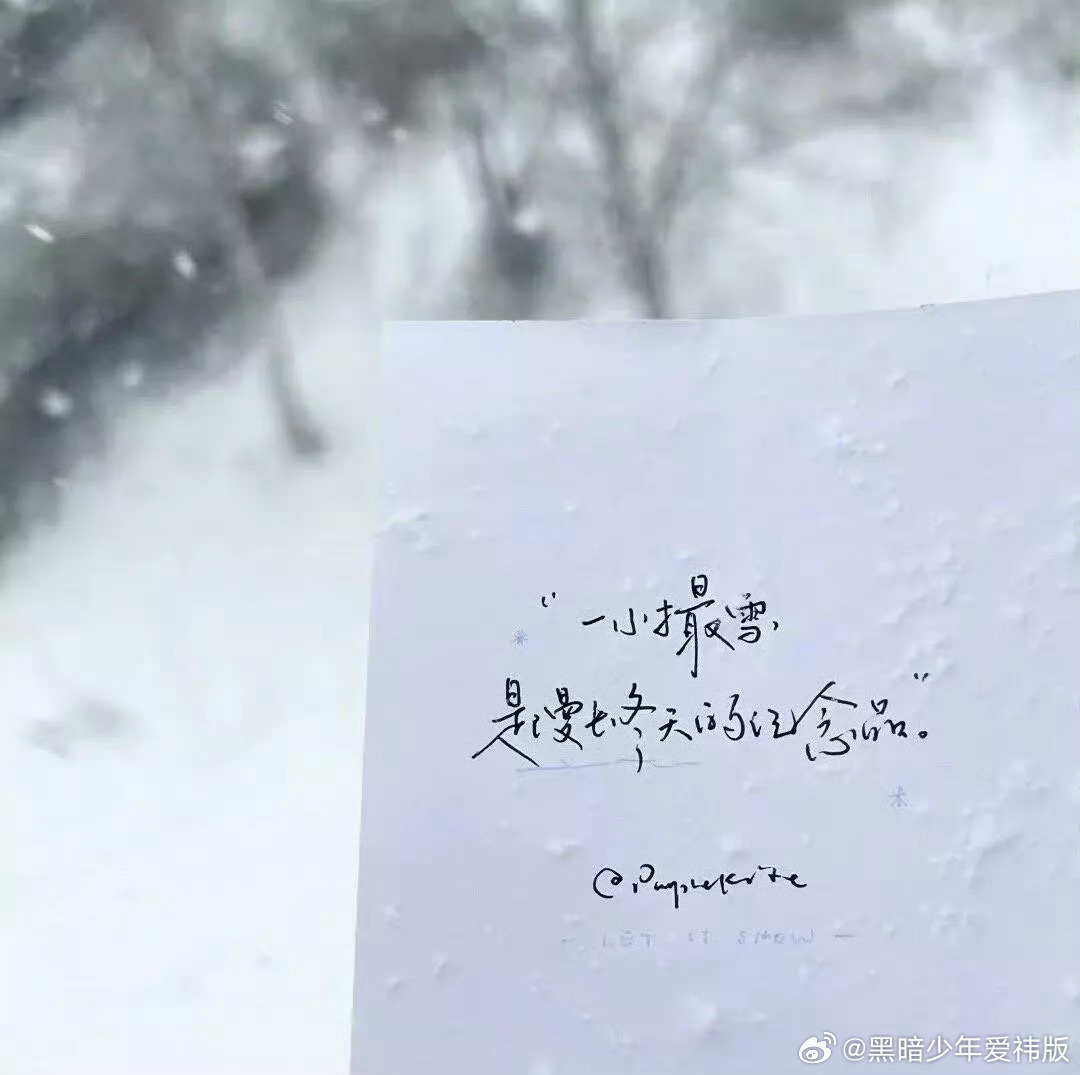 “一小撮雪,
是漫长冬天的纪念品。”
@Purplekite
- LET IT SNOW -
@黑暗少年爱祎版